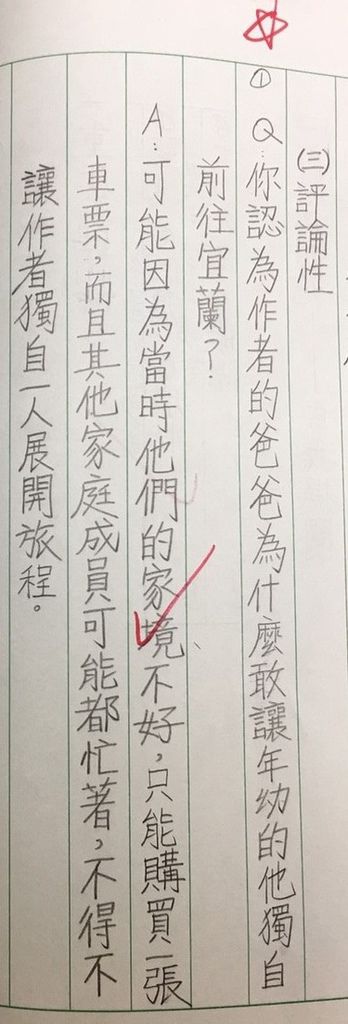 (三)評論性
① Q:你認為作者的爸爸為什麼敢讓年幼的他獨自
前往宜蘭?
A:可能因為當時他們的家境不好,只能購買一張
車票,而且其他家庭成員可能都忙著,不得不
讓作者獨自一人展開旅程。